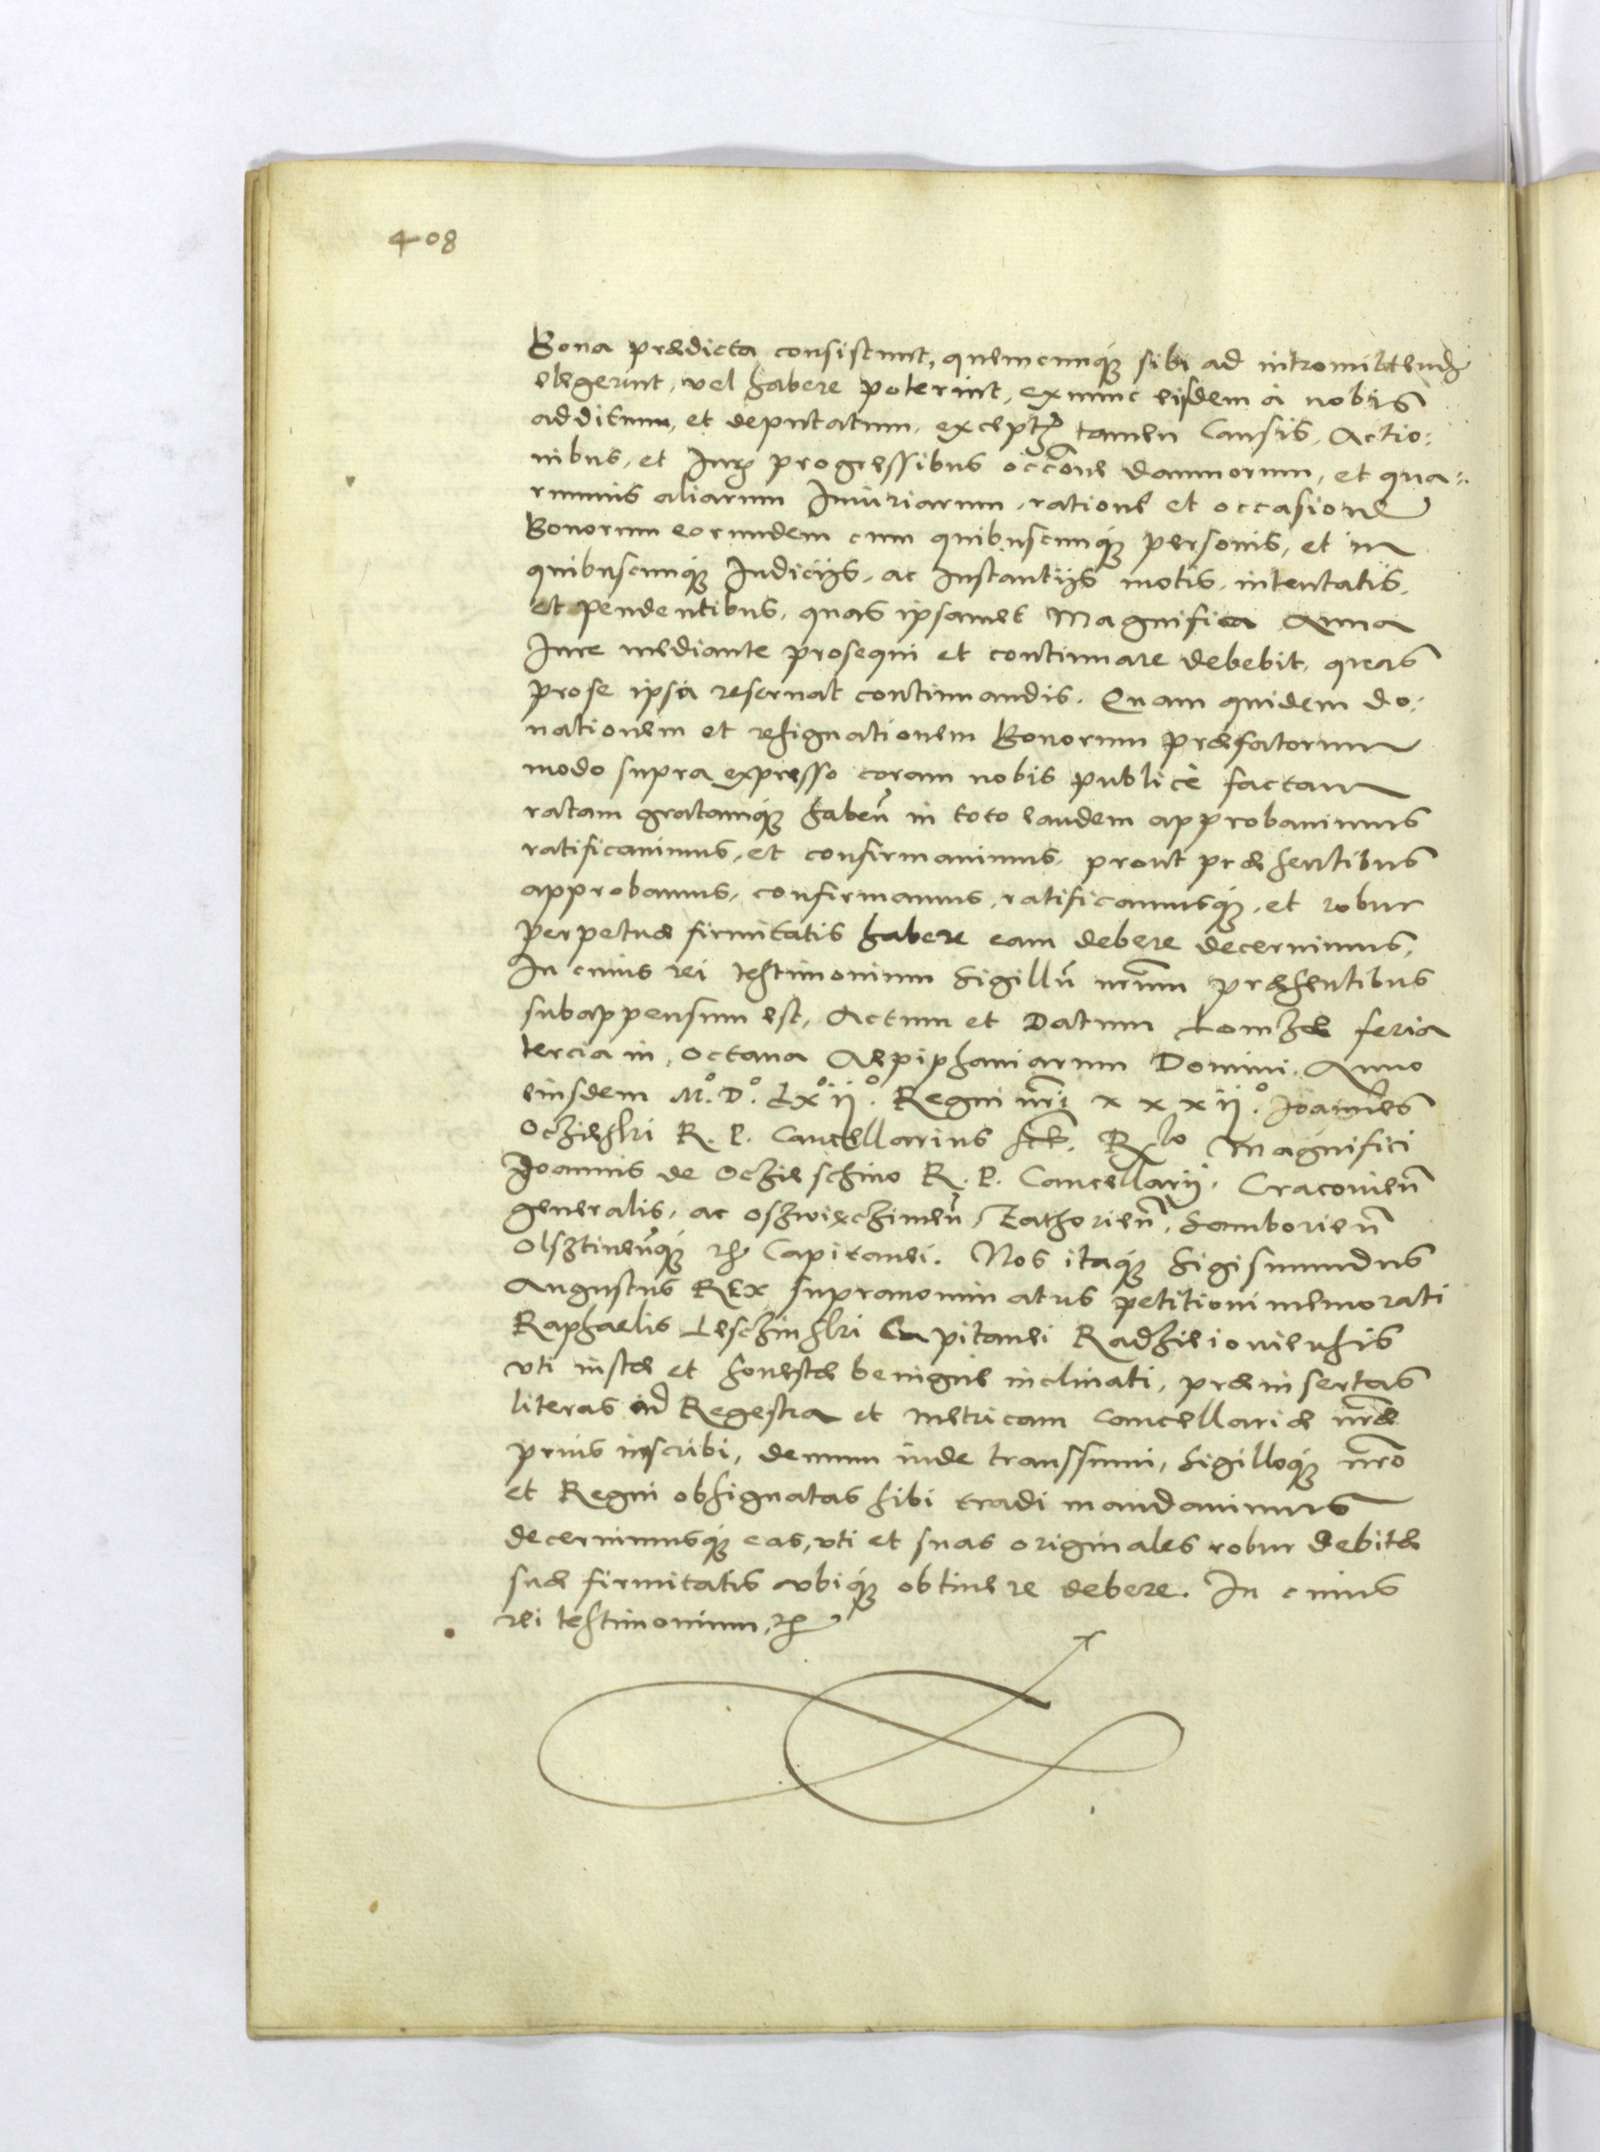 408
Bona prædicta consistunt, quemcunq₃ sibi ad intromittend
elegerint, vel habere poterint, exnunc eisdem à nobis
additum, et deputatum, except tamen Causis, Actio:
nibus, et Iur progressibus occone damnorum, et qua:
rumuis aliarum Iniuriarum, ratione et occasione
Bonorum eorundem cum quibuscunq₃ personis, et in
quibuscunq₃ Iudicijs, ac Instantijs motis, intentatis,
et pendentibus, quas ipsamet Magnifica Anna
Iure mediante prosequi et continuare debebit, quas
prose ipsa reseruat continuandis. Quam quidem do:
nationem et resignationem Bonorum præfatorum
modo supra expresso coram nobis publicè factam
ratam gratamq₃ haben in toto eandem approbauimus
ratificauimus, et confirmauimus, prout præsentibus
approbamus, confirmamus, ratificamusq₃, et robur
perpetuæ firmitatis habere eam debere decernimus.
In cuius rei testimonium Sigillū nrum præsentibus
subappensum est, Actum et Datum Lomzæ feria
tercia in, Octaua Aepiphaniarum Domini. Anno
eiusdem M.° D.° Lx°ij°. Regni nri x x x ij.° Ioannes
Oczieski R. P. Cancellarius sst. Rlo Magnifici
Ioannis de Oczieschino R. P. Cancellarij, Cracouien
generalis, ac Oszwieczimen, Zathorien, Samborien
Olsztinenq₃ Capitanei. Nos itaq₃ Sigismundus
Augustus REX supranominatus petitioni memorati
Raphaelis Lesczinski Capitanei Radzieiouiensis
vti iustæ et honestæ benigne inclinati, præinsertas
literas ad Regestra et Metricam Cancellariæ nræ
prius inscribi, demum inde transsumi, Sigilloq₃ nro
et Regni obsignatas sibi tradi mandauimus
decernimusq₃ eas, vti et suas originales robur debitæ
suæ firmitatis vbiq₃ obtinere debere. In cuius
rei testimonium,